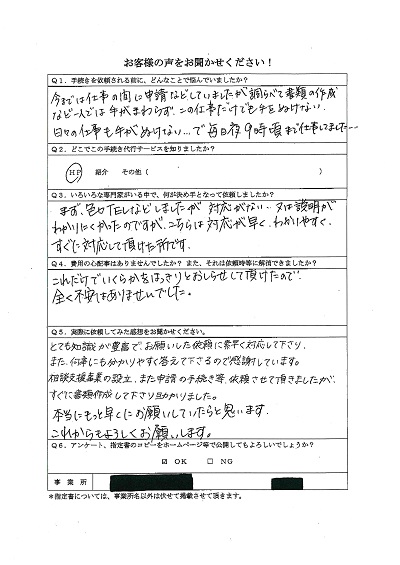 お客様の声をお聞かせください！
Ｑ１．手続きを依頼される前に、どんなことで悩んでいましたか？
今までは仕事の間に申請などしていましたが調らべて書類の作成
など一人では手がまわらず、この仕事だけでも手をぬけない、
日々の仕事も手がぬけない…で毎日夜9時頃まで仕事してました…
Ｑ２．どこでこの手続き代行サービスを知りましたか？
HP 紹介 その他（ ）
Ｑ３．いろいろな専門家がいる中で、何が決め手となって依頼しましたか？
まず、色々TELなどしましたが対応がない、又は説明が
わかりにくかったのですが、こちらは対応が早く、わかりやすく、
すぐに対応して頂けた所です。
Ｑ４．費用の心配事はありませんでしたか？また、それは依頼時等に解消できましたか？
これだけでいくらかをはっきりとおしらせして頂けたので、
全く不安はありませんでした。
Ｑ５．実際に依頼してみた感想をお聞かせください。
とても知識が豊富で、お願いした依頼に素早く対応して下さり、
また、何事にも分かりやすく答えて下さるので感謝しています。
相談支援事業の設立、また申請の手続き等、依頼させて頂きましたが、
すぐに書類作成して下さり助かりました。
本当にもっと早くにお願いしていたらと思います。
これからもよろしくお願いします。
Ｑ６．アンケート、指定書のコピーをホームページ等で公開してもよろしいでしょうか？
☑ ＯＫ □ ＮＧ
事業所
＊指定書については、事業所名以外は伏せて掲載させて頂きます。